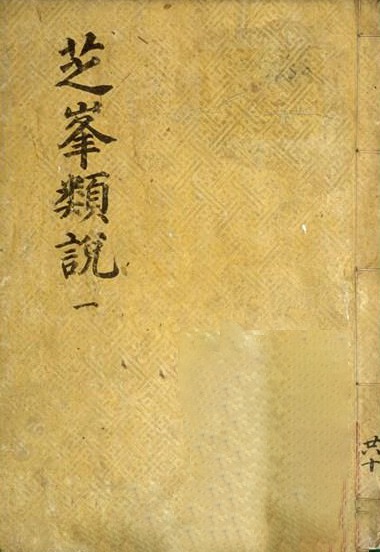 芝峯類說 一
共十